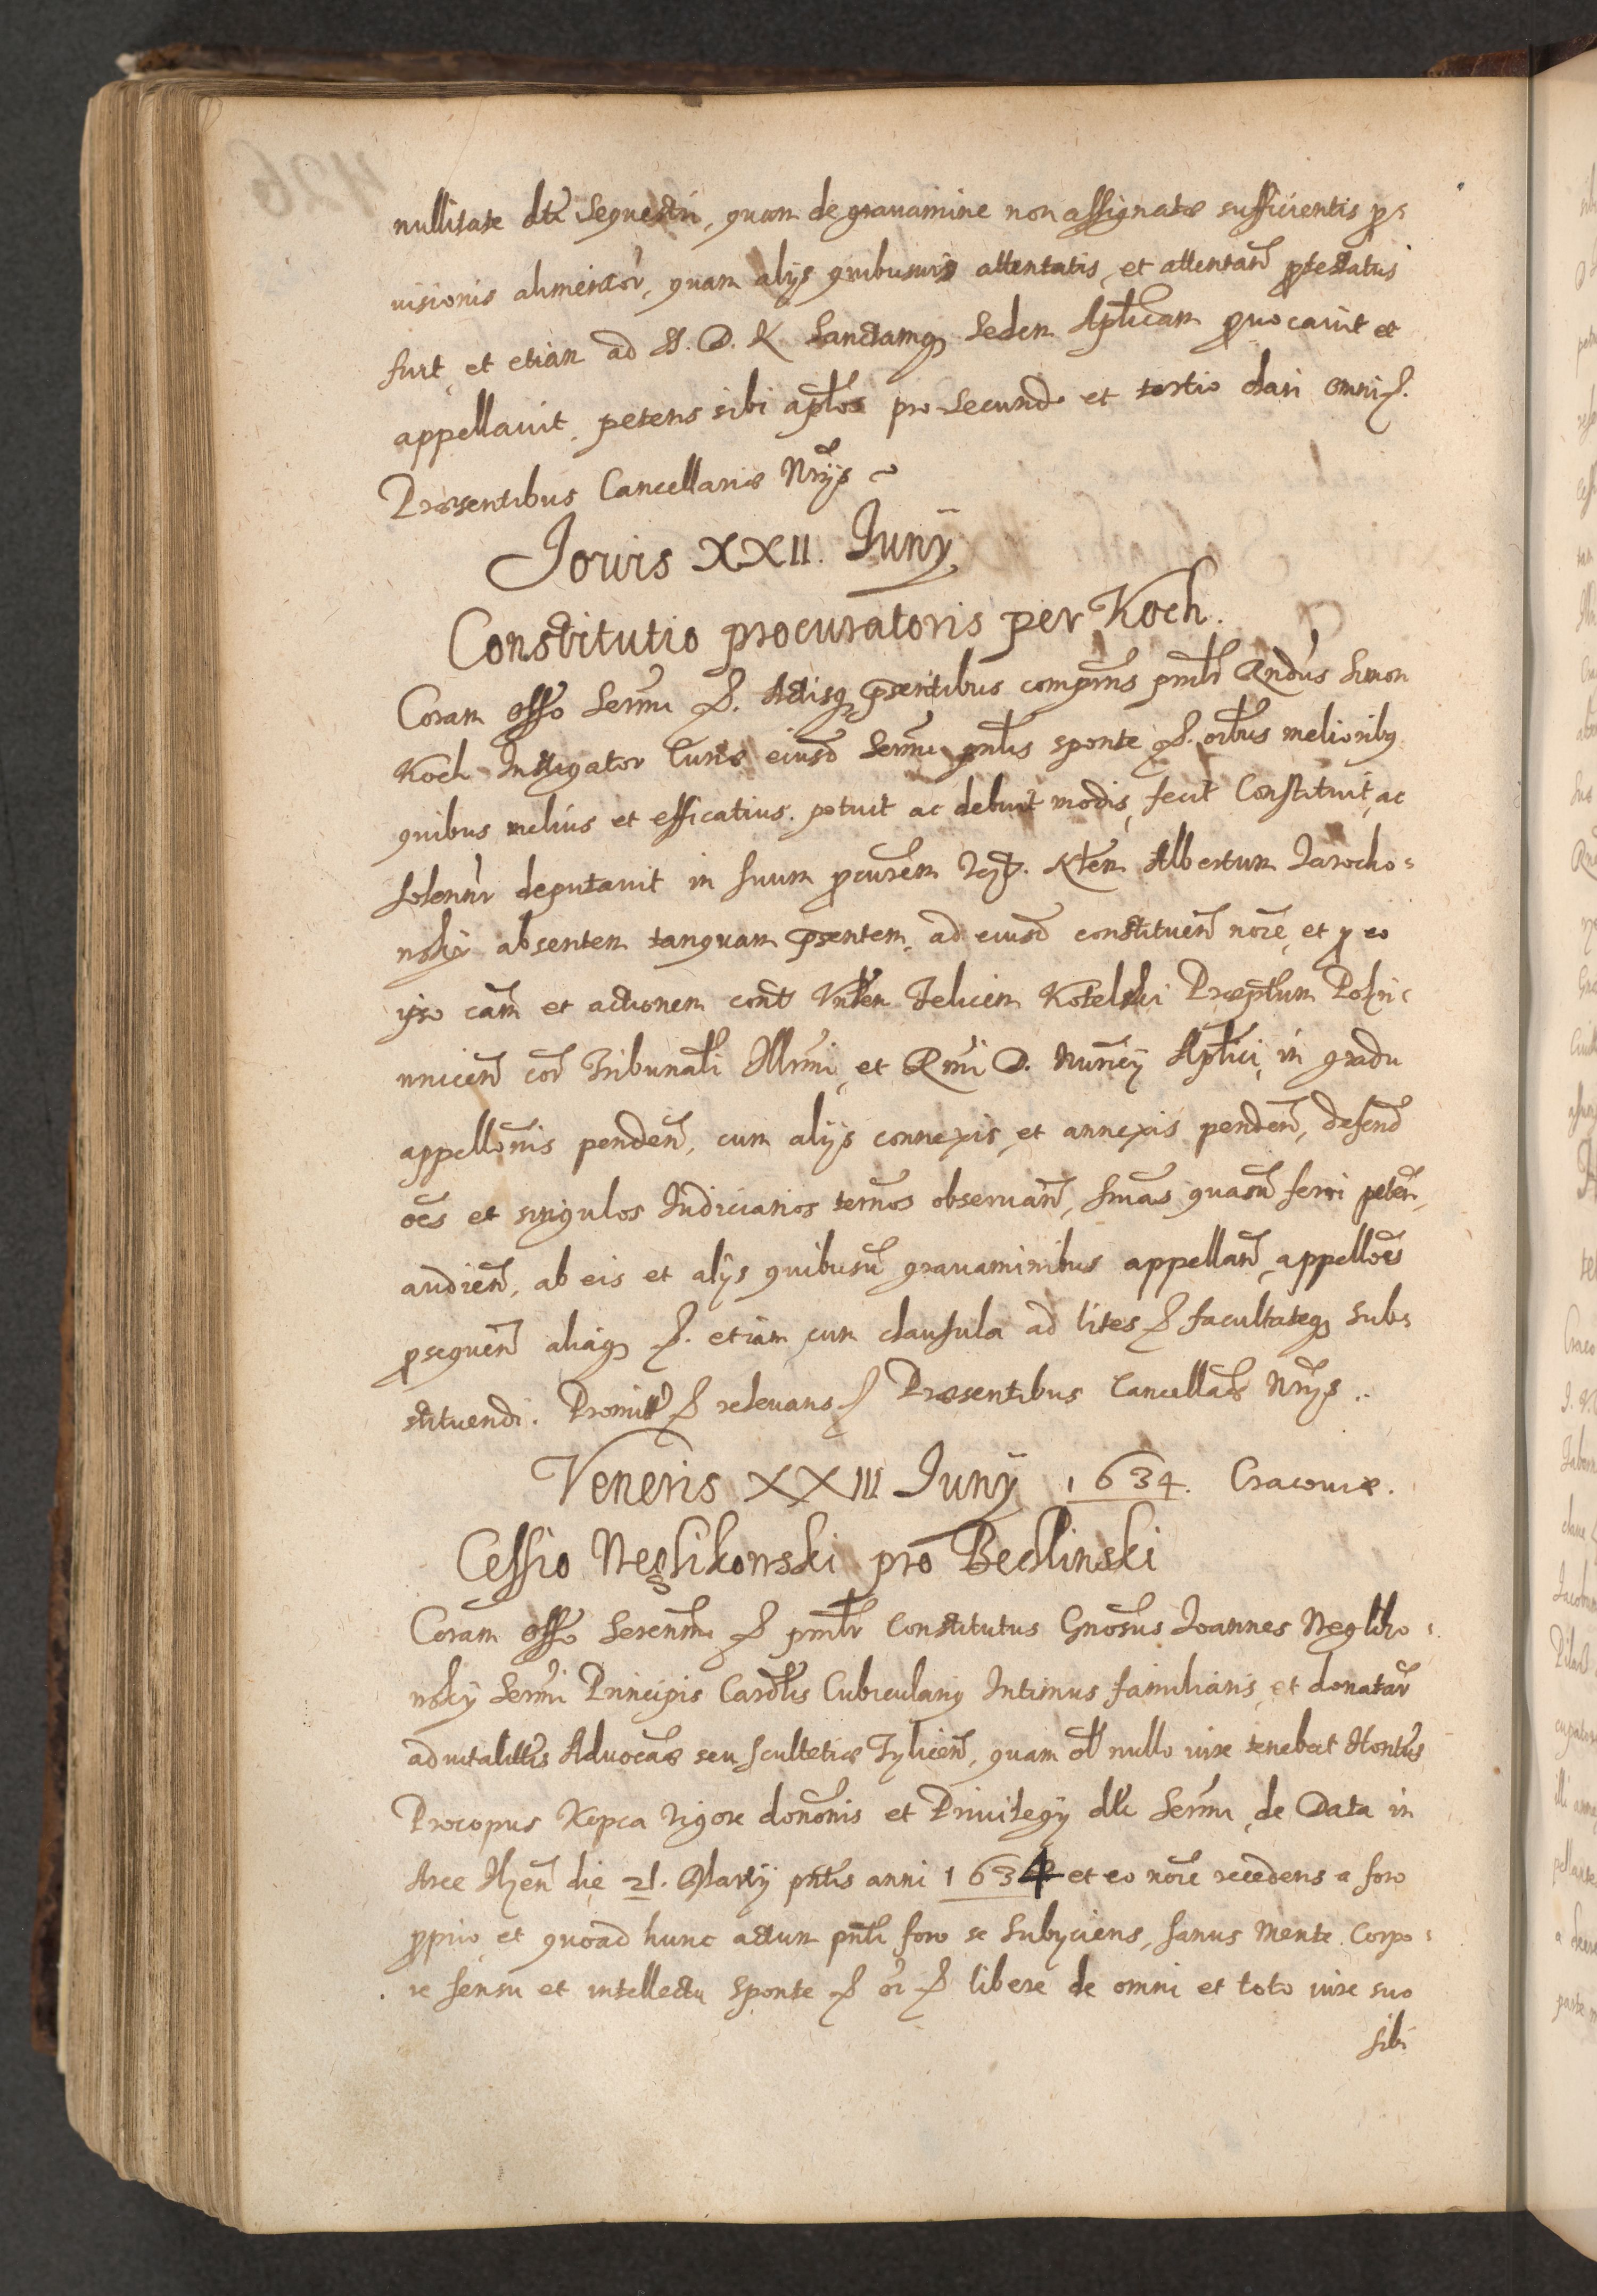 nullitate dtæ Sequestri, quam de grauamine non assignatæ sufficientis pro=
uisionis alimentor, quam alijs quibusuis attentatis, et attentan͠ protestatus
fuit, et etiam ad S. D. N. Sanctamq; Sedem Aplicam prouocauit et
appellauit, petens sibi aplos pro Secundo et tertio dari omni
Præsentibus Cancellariæ Nrijs
Jouis XXII. Junÿ
Constitutio procuratoris per Koch.
Coram offo Sermi Actisq; præsentibus comprns prnlr Rndus Simon
Koch Instigator Curiæ eiusd Sermi gnlis sponte oibus melioribq
quibus melius et efficatius potuit ac debuit modis, fecit Constituit, ac
Solennr deputauit in suum procurem Albertum Jarocho=
nskÿ absentem tanquam præsentem, ad eiusd constituen͠ noie, et pro eo
ipso cam et actionem cont Felicem Kotelski Præptum Polni=
unicen͠ cor Tribunali Illmi, et Rmi D. Nuncÿ Aplici, in gradu
appellonis penden͠, cum alijs connexis, et annexis penden͠, defend
oes et singulos Judiciarios termos obseruan͠, smas quasu ferri peten͠,
audien͠, ab eis et alijs quibusu grauaminibus appellan͠, appelloes
prosequen͠ aliaq; etiam cum clausula ad lites facultateq; Sub=
stituendi. Promitt relevans Præsentibus Cancellariæ Nrijs.
Veneris XXIII Junÿ 1634. Cracouiæ.
Cessio Neglikowski pro Bechlinski
Coram offo Serenmi prnlr Constitutus Gnosus Joannes Negliko=
nskÿ Sermi Principis Cardlis Cubicularius Intimus familiaris, et donatar
aduitalitis Aduocaæ seu Scultetiæ Tylicen͠, quam ol nullo iure tenebat Hontus
Procopus Kepca vigore dononis et Priuilegÿ dti Sermi, de Data in
Arce die 21. Martÿ pntis anni 1634 et eo noie recedens a foro
proprio, et quoad hunc actum pnti foro se Subÿciens, sanus mente Corpo=
re sensu et intellectu Sponte or libere de omni et toto iure suo
sibi